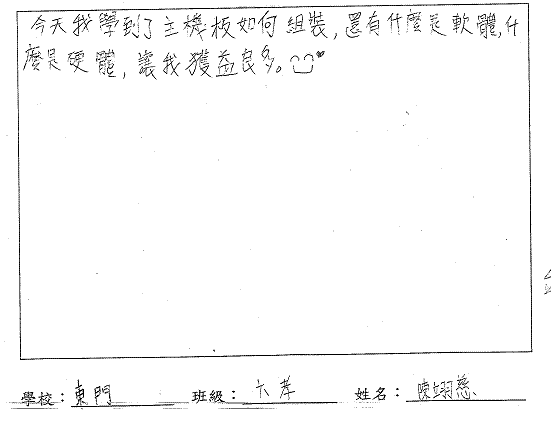 今天我學到了主機板如何組裝,還有什麼是軟體,什
麼是硬體,讓我獲益良多。
學校:東門 班級:六孝 姓名:陳翊慈